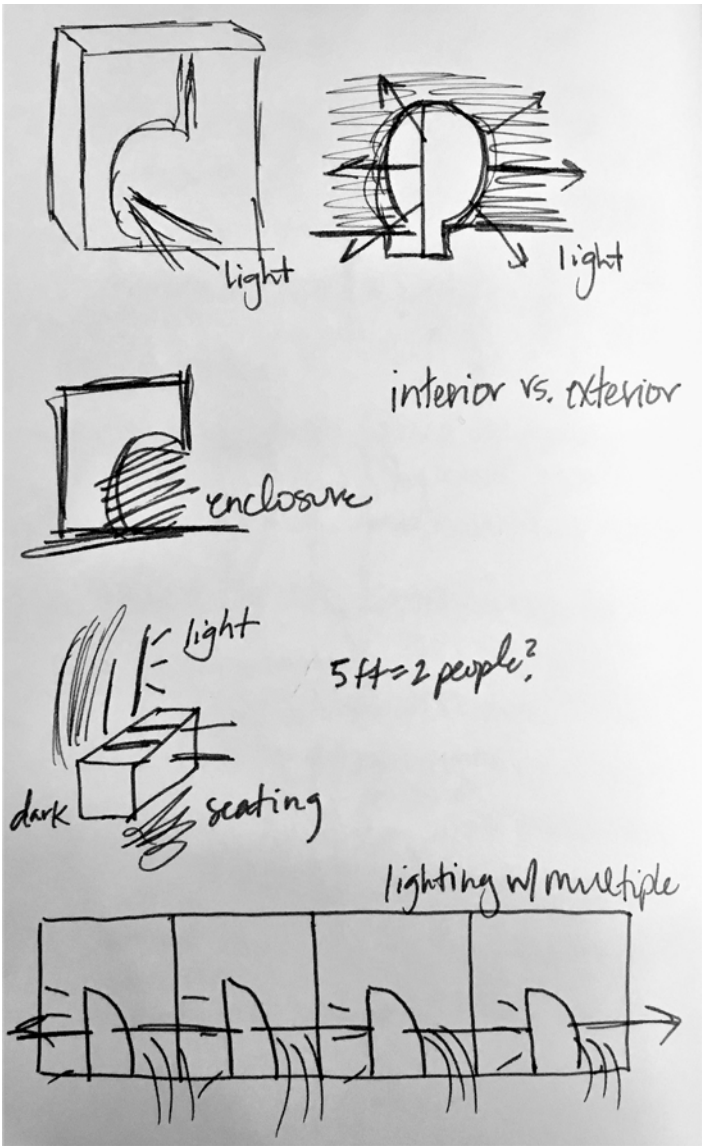 light
light
interior vs. exterior
enclosure
light
5 ft = 2 people?
dark
seating
lighting w/ multiple